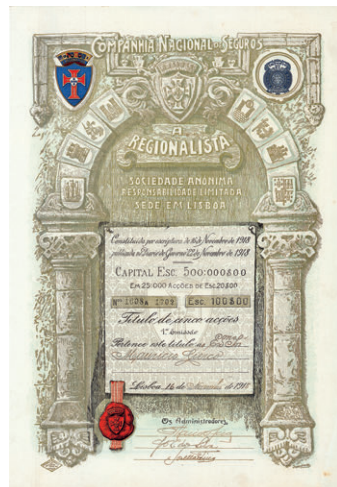 COMPANHIA NACIONAL DE SEGUROS
A
REGIONALISTA
SOCIEDADE ANONIMA
RESPONSABILIDADE LIMITADA
SEDE EM LISBOA
Constituida por escriptura de 16 de Novembro de 1918
publicada no Diario do Governo de Novembro de 1918
CAPITAL ESC. 500:000$00
EM 25:000 ACÇÕES DE ESC. 20$00
Nos 1698 a 1702 ESC. 100$00
Titulo de cinco acções
1ª Emissão
Pertence este titulo ao
Mauricio
Lisboa, 16 de de 1918
Os Administradores,